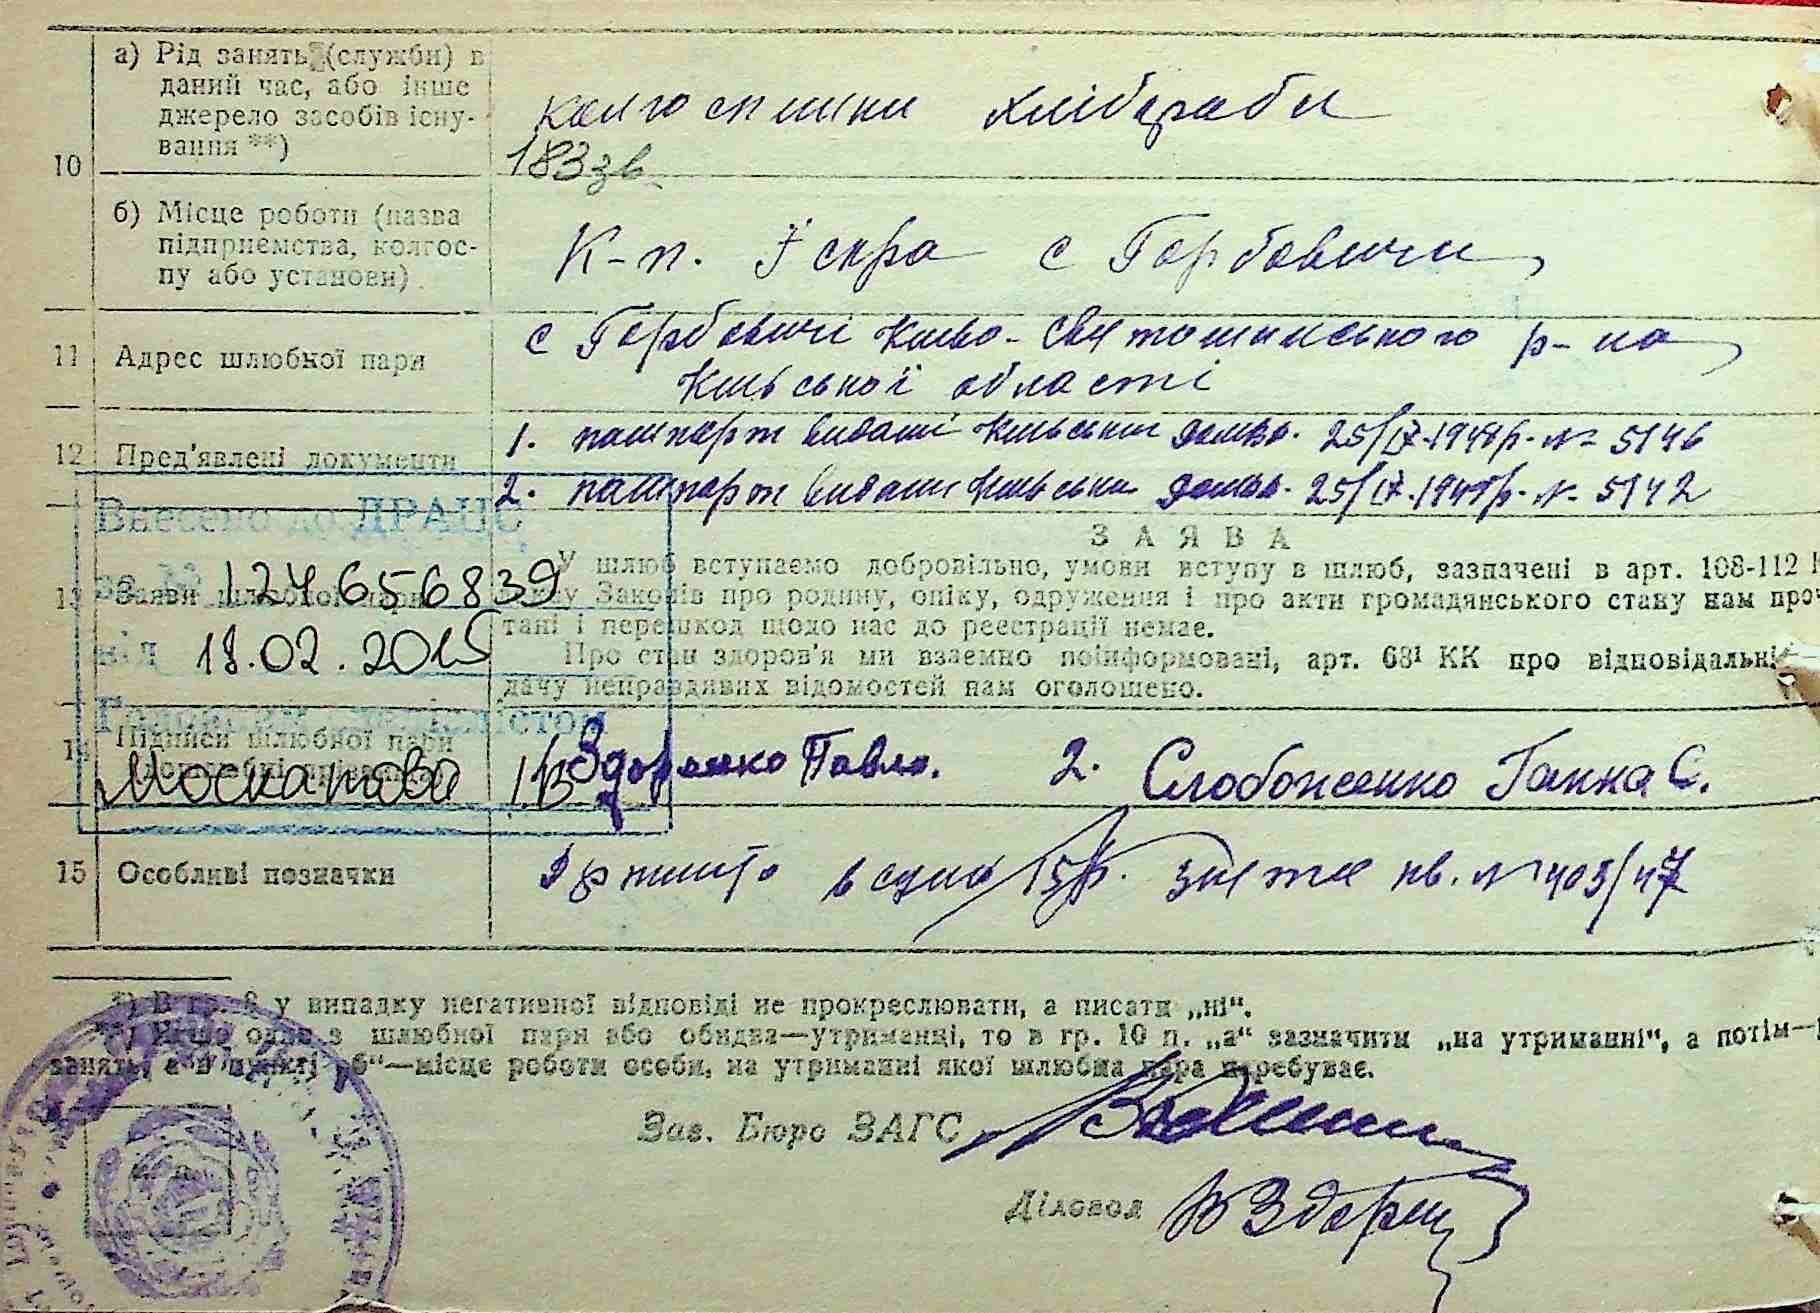 а) Рід занять (служби) в
даний час, або інше
джерело засобів існу-
вання **)
колгоспники хлібороби
183зв
10
б) Місце роботи (назва
підприємства, колгос-
пу або установи)
К-п. Іскра с Горбовичи
11 Адрес шлюбної пари
с Горбовичі Києво-Святошинського р-на
Київської області
12 Пред'явлені документи
1. пашпорт видані Київським 25/IX-194 р. № 5146
2. пашпорт видани Київськи 25/IX-194 р. № 5142
Внесено до ДРАЦС
за № 127656839
від 18.02.2015
Головним спеціалістом
13 Заяви шлюбної пари
ЗАЯВА
У шлюб вступаємо добровільно, умови вступу в шлюб, зазначені в арт. 108-112
Законів про родину, опіку, одруження і про акти громадянського стану нам проч
тані і перешкод щодо нас до реєстрації немає.
Про стан здоров'я ми взаємно поінформовані, арт. 68¹ КК про відповідальні
дачу неправдивих відомостей нам оголошено.
14 Підписи шлюбної пари
1. Здоренко Павло. 2. Слобоженко Ганна С.
15 Особливі позначки
15 р. кв. № 403/47
*) В гр. 8 у випадку негативної відповіді не прокреслювати, а писати „ні“.
**) Якщо одно з шлюбної пари або обидва—утриманці, то в гр. 10 п. „а“ зазначити „на утриманні“, а потім—
занять, а в пункті „б“—місце роботи особи, на утриманні якої шлюбна пара перебуває.
Зав. Бюро ЗАГС
Діловод